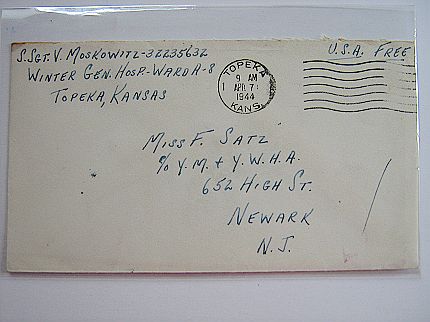 S.Sgt. V. Moskowitz-32235632
Winter Gen. Hosp.-Ward A-8
Topeka, Kansas
TOPEKA
9 AM
1 APR 7
1944
KANS.
U.S.A. Free
Miss F. Satz
c/o Y.M. + Y.W.H.A.
652 High St.
Newark
N.J.